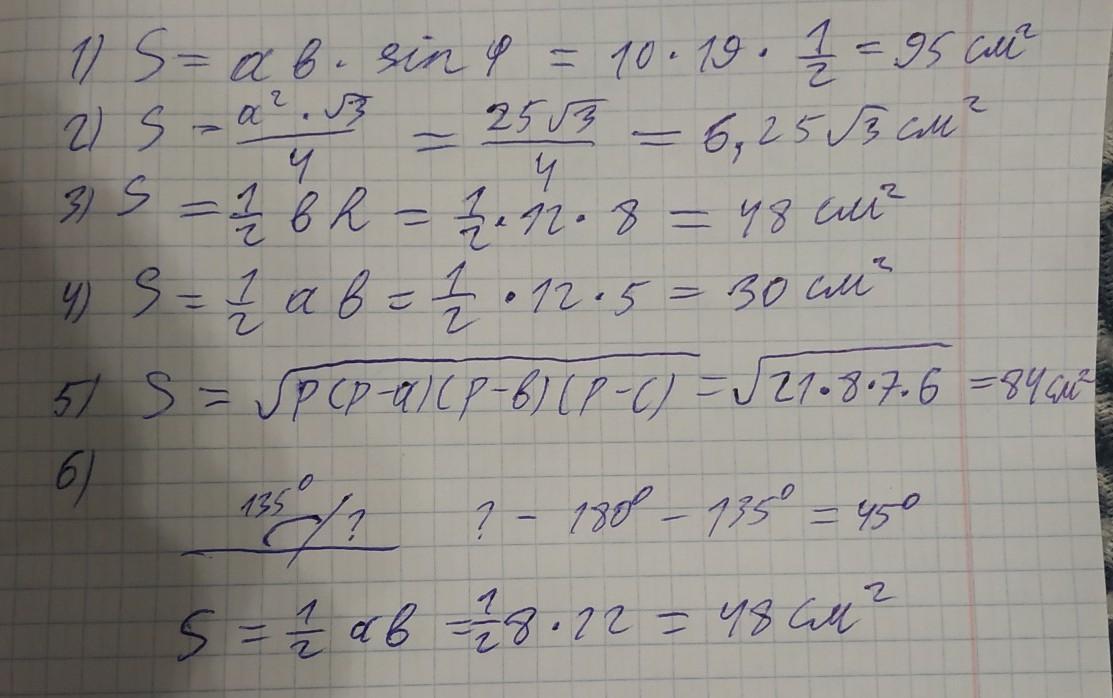 1) S = a b · sin φ = 10 · 19 · 1/2 = 95 см²
2) S = a² · √3/4 = 25√3/4 = 6,25√3 см²
3) S = 1/2 b h = 1/2 · 12 · 8 = 48 см²
4) S = 1/2 a b = 1/2 · 12 · 5 = 30 см²
5) S = √p(p-a)(p-b)(p-c) = √21·8·7·6 = 84 см²
6)
135° ? ? - 180° - 135° = 45°
S = 1/2 ab = 1/2 8 · 12 = 48 см²